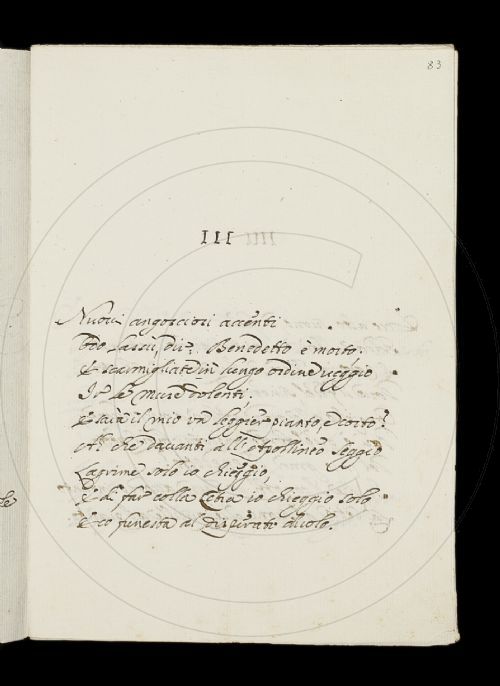 83
III
Nuovi angosciosi accenti
Odo lassù, dir: Benedetto è morto.
E scarmigliate in lungo ordine veggio
Ir le Muse dolenti;
E sarà il mio va leggier pianto, e corto?
Ah che davanti all' Apollineo seggio
Lagrime solo io chieggio,
E di far colla Cetra io chieggio solo
Eco funesta al disperato duolo.